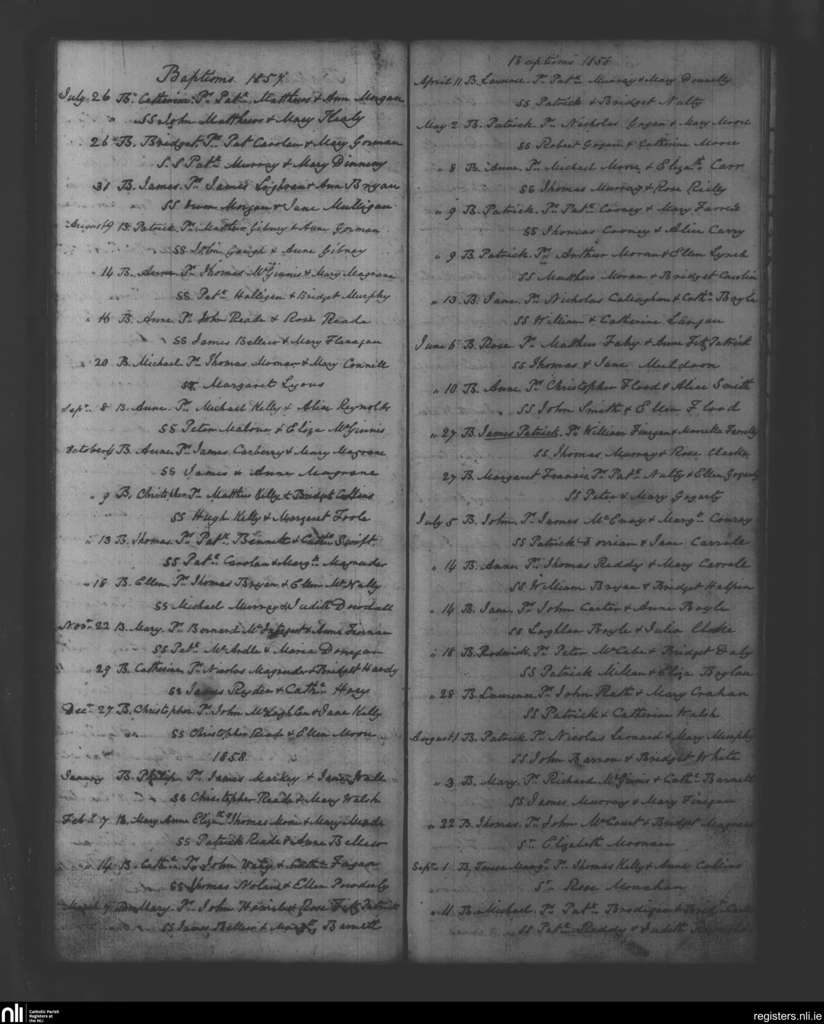 Baptisms 1857
July 26 Bn Catherine. Pts Patk. Matthews & Ann Morgan
" SS John Matthews & Mary Healy
26 Bn Bridget. Pts Pat Carolan & Mary Gorman
SS Patk. Murray & Mary Dinneny
31 B. James. Pts James & Ann Bryan
SS Owen Morgan & Jane Mulligan
August 9 B. Patrick. Pts Mathew Gibney & Anne Gorman
SS John & Anne Gibney
" 14 B. Pts Thomas McGinnis & Mary Magrane
SS Patk. Halligan & Bridget Murphy
" 16 B. Anne. Pts John Reade & Rose Reade
SS James Bellew & Mary Flanagan
" 20 B. Michael. Pts Thomas & Mary Connell
SS. Margaret Lyons
Septr. 8 B. Anne. Pts Michael Kelly & Alice Reynolds
SS Peter Malone & Eliza McGinnis
October 4 B. Anne. Pts James Carberry & Mary Magrane
SS James & Anne Magrane
" 9 B. Christopher Pts Matthew Kelly & Bridget Collins
SS Hugh Kelly & Margaret Toole
" 13 B. Thomas. Pts Patk. Bennett & Cathn. Swift
SS Patk. Carolan & Margt.
" 18 B. Ellen. Pts Thomas Bryan & Ellen McNally
SS Michael Murray & Judith Dowdall
Novr. 22 B. Mary. Pts Bernard & Anne
SS Patk. McArdle & Maria Donegan
29 B. Catherine Pts Nicolas & Bridget Hardy
SS James Ryder & Cathn. Hoey
Decr. 27 B. Christopher. Pts John & Jane Kelly
SS Christopher Reade & Ellen Moore
1858
January B. Philip Pts James Markey & Jane
SS Christopher Reade & Mary Walsh
Feb 27 B. Mary Anne Elizth. Thomas Moore & Mary Meade
SS Patrick Reade & Anne Bellew
" 14 B. Cathn. Pts John & Cathn. Fagan
SS Thomas Noland & Ellen Powderly
March 7 B. Mary. Pts John & Rose Fitz Patrick
SS James Bellew & Margt. Barnett
Baptisms 1858
April 11 B. Laurence. Pts Patk. Murray & Mary Donnelly
SS Patrick & Bridget Nulty
May 2 B. Patrick. Pts Nicholas Gogan & Mary Moore
SS Robert Gogan & Catherine Moore
" 8 B. Anne. Pts Michael Moore & Elizath. Carr
SS Thomas Murray & Rose Reilly
" 9 B. Patrick. Pts Patk. Cooney & Mary
SS Thomas Cooney & Alice Carry
" 9 B. Patrick. Pts Arthur Moran & Ellen Lynch
SS Matthew Moran & Bridget
" 13 B. Jane. Pts Nicholas Callaghan & Cathn. Boyle
SS William & Catherine
June 6 B. Rose Pts Mathew Fahy & Anne Fitz Patrick
SS Thomas & Jane Muldoon
" 10 B. Anne. Pts Christopher Flood & Alice Smith
SS John Smith & Ellen Flood
" 27 B. James Patrick. Pts William Finegan &
SS Thomas Murray & Rose
27 B. Margaret Francis Pts Patk. Nulty & Ellen Gogarty
SS Peter & Mary Gogarty
July 5 B. John. Pts James McEvoy & Mary Conroy
SS Patrick Dorrian & Jane Carrole
" 14 B. Anne. Pts Thomas Reddy & Mary Carrole
SS William Bryan & Bridget Halpin
" 14 B. Jane. Pts John Carter & Anne Boyle
SS Loghlen Boyle & Julia
" 18 B. Roderick. Pts Peter McCabe & Bridget Daly
SS Patrick & Eliza Boylan
" 28 B. Laurence. Pts John & Mary
SS Patrick & Catherine Walsh
August 1 B. Patrick Pts Nicolas Leonard & Mary Murphy
SS John Barron & Bridget White
" 3 B. Mary. Pts Richard McGinnis & Cathn. Barnett
SS James Murray & Mary Finigan
" 22 B. Thomas. Pts John McCourt & Bridget Magrane
Sr. Elizabeth Moonan
Septr. 1 B. Margt. Pts Thomas Kelly & Anne Collins
Sr. Rose Monahan
" 11 B. Michael. Pts Patk. Brodigan &
SS Patk. Reddy & Judith
nli
Catholic Parish
Registers at
the NLI
registers.nli.ie